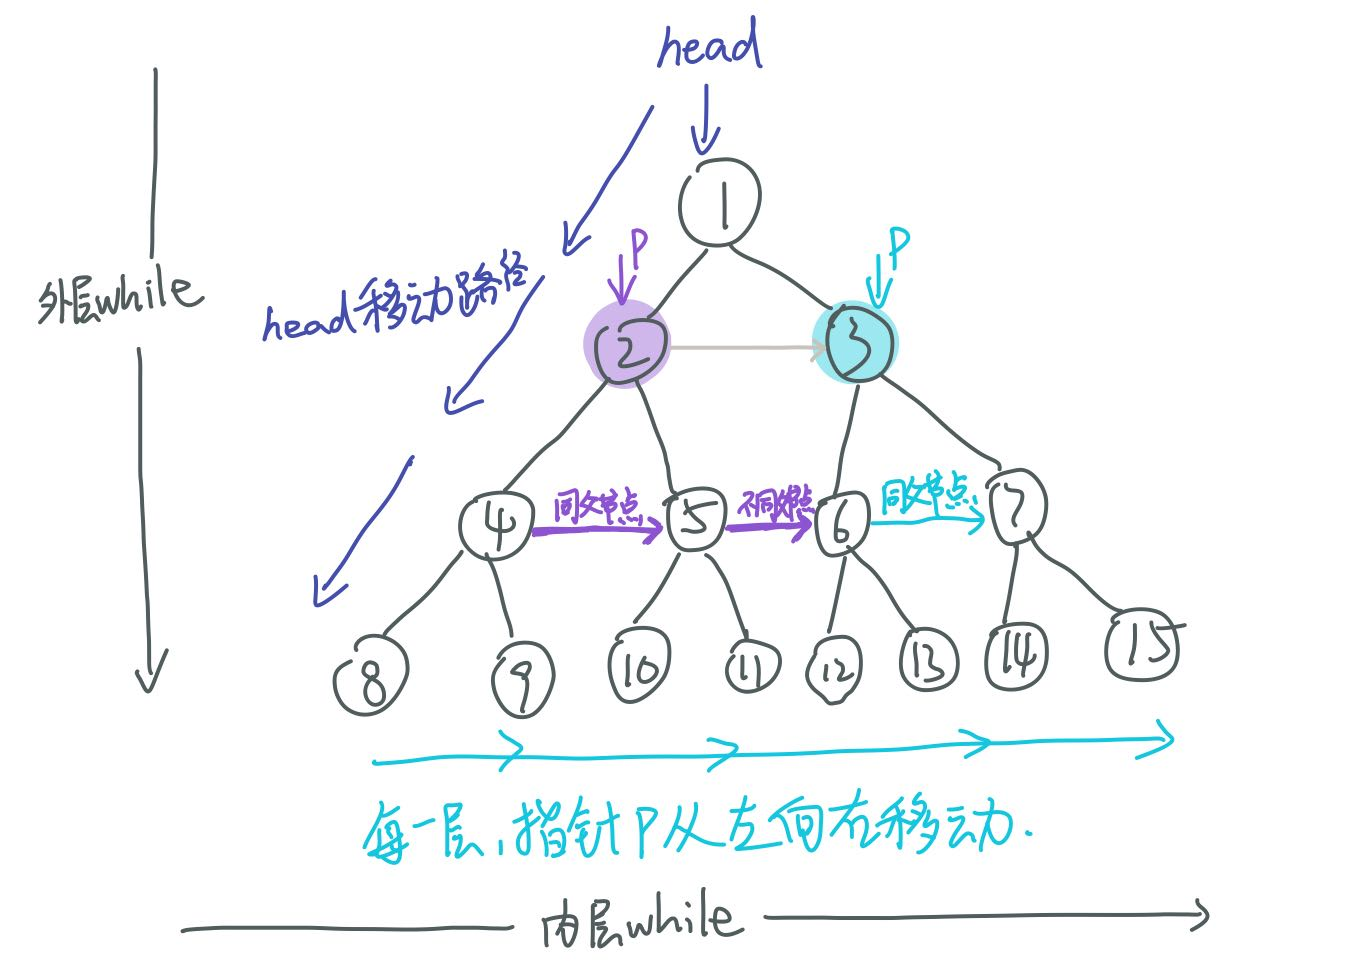 head
1
P
P
外层while
head移动路径
2
3
同父节点
不同父节点
同父节点
4
5
6
7
8
9
10
11
12
13
14
15
每一层,指针P从左向右移动.
内层while